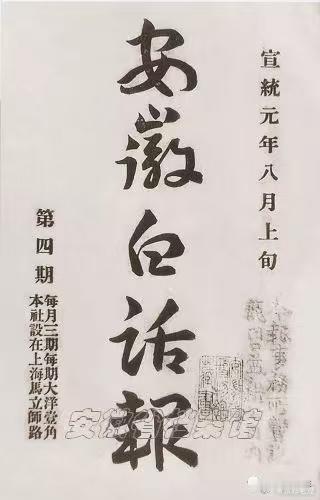 宣統元年八月上旬
安徽白话報
第四期
每月三期每期大洋壹角
本社設在上海馬立師路
安徽省档案馆